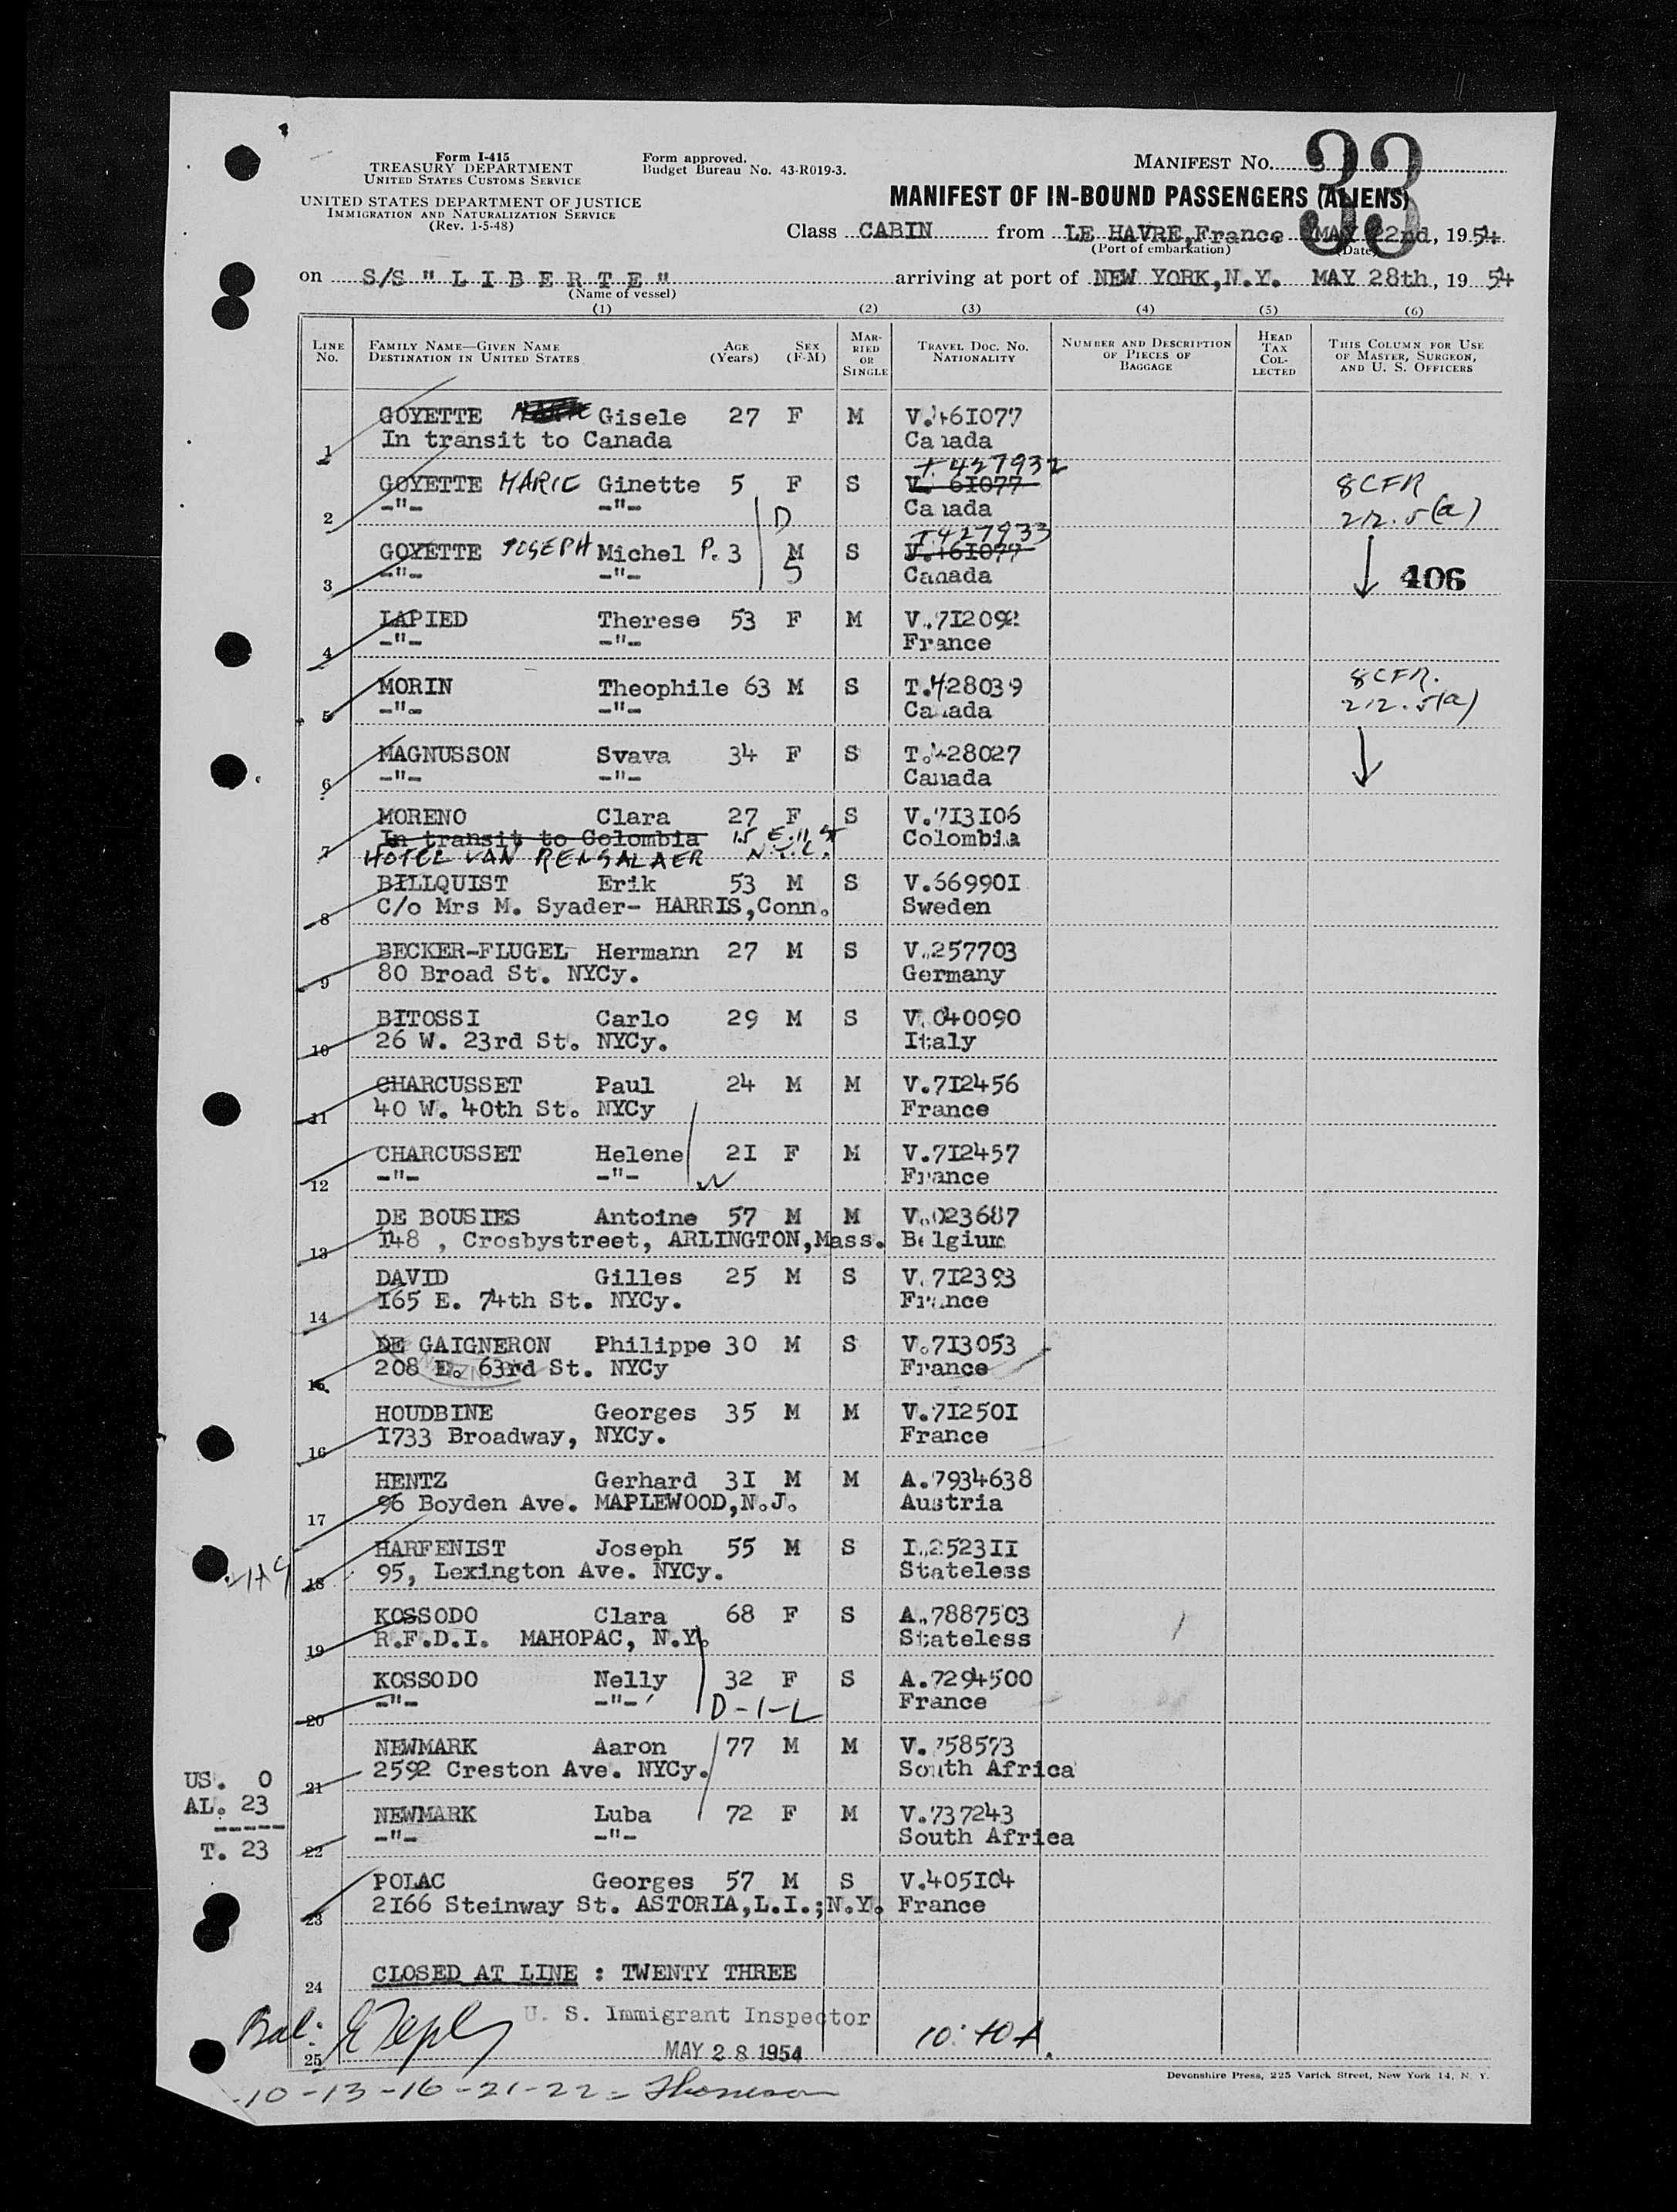 Form I-415
TREASURY DEPARTMENT
UNITED STATES CUSTOMS SERVICE
UNITED STATES DEPARTMENT OF JUSTICE
IMMIGRATION AND NATURALIZATION SERVICE
(Rev. 1-5-48)
Form approved.
Budget Bureau No. 43-R019-3.
MANIFEST NO. 33
MANIFEST OF IN-BOUND PASSENGERS (ALIENS)
Class CABIN from LE HAVRE,France MAY 22nd, 1954
(Port of embarkation) (Date)
on S/S "LIBERTE" arriving at port of NEW YORK,N.Y. MAY 28th, 1954
(Name of vessel)
(1) (2) (3) (4) (5) (6)
LINE No. FAMILY NAME—GIVEN NAME DESTINATION IN UNITED STATES AGE (Years) SEX (F-M) MARRIED OR SINGLE TRAVEL DOC. NO. NATIONALITY NUMBER AND DESCRIPTION OF PIECES OF BAGGAGE HEAD TAX COLLECTED THIS COLUMN FOR USE OF MASTER, SURGEON, AND U. S. OFFICERS
GOYETTE Gisele 27 F M V.461077
1 In transit to Canada Canada
T.427932
GOYETTE MARIE Ginette 5 F S V. 61077 8CFR
2 -"- -"- D Canada 212.5(a)
T427933
GOYETTE JOSEPH Michel P. 3 M S V.461077
3 -"- -"- 5 Canada 406
LAPIED Therese 53 F M V.712092
4 -"- -"- France
MORIN Theophile 63 M S T.428039 8CFR.
5 -"- -"- Canada 212.5(a)
MAGNUSSON Svava 34 F S T.428027
6 -"- -"- Canada
MORENO Clara 27 F S V.713106
In transit to Colombia 15 E.11 ST Colombia
7 HOTEL VAN RENSALAER N.Y.C.
BILLQUIST Erik 53 M S V.669901
8 C/o Mrs M. Syader- HARRIS,Conn. Sweden
BECKER-FLUGEL Hermann 27 M S V.257703
9 80 Broad St. NYCy. Germany
BITOSSI Carlo 29 M S V.040090
10 26 W. 23rd St. NYCy. Italy
CHARCUSSET Paul 24 M M V.712456
11 40 W. 40th St. NYCy France
CHARCUSSET Helene 21 F M V.712457
12 -"- -"- France
DE BOUSIES Antoine 57 M M V.023687
13 148 , Crosbystreet, ARLINGTON,Mass. Belgium
DAVID Gilles 25 M S V.712393
14 165 E. 74th St. NYCy. France
DE GAIGNERON Philippe 30 M S V.713053
15 208 E. 63rd St. NYCy France
HOUDBINE Georges 35 M M V.712501
16 1733 Broadway, NYCy. France
HENTZ Gerhard 31 M M A.7934638
17 96 Boyden Ave. MAPLEWOOD,N.J. Austria
HARFENIST Joseph 55 M S I.252311
18 95, Lexington Ave. NYCy. Stateless
KOSSODO Clara 68 F S A.7887503
19 R.F.D.I. MAHOPAC, N.Y. Stateless
KOSSODO Nelly 32 F S A.7294500
20 -"- -"- D-1-L France
NEWMARK Aaron 77 M M V.758573
21 2592 Creston Ave. NYCy. South Africa
NEWMARK Luba 72 F M V.737243
22 -"- -"- South Africa
US. 0
AL. 23
-----
T. 23
POLAC Georges 57 M S V.405104
23 2166 Steinway St. ASTORIA,L.I.;N.Y. France
24 CLOSED AT LINE : TWENTY THREE
U. S. Immigrant Inspector
Bal: 10:40A.
25 MAY 28 1954
-10-13-16-21-22-
Devonshire Press, 225 Varick Street, New York 14, N. Y.